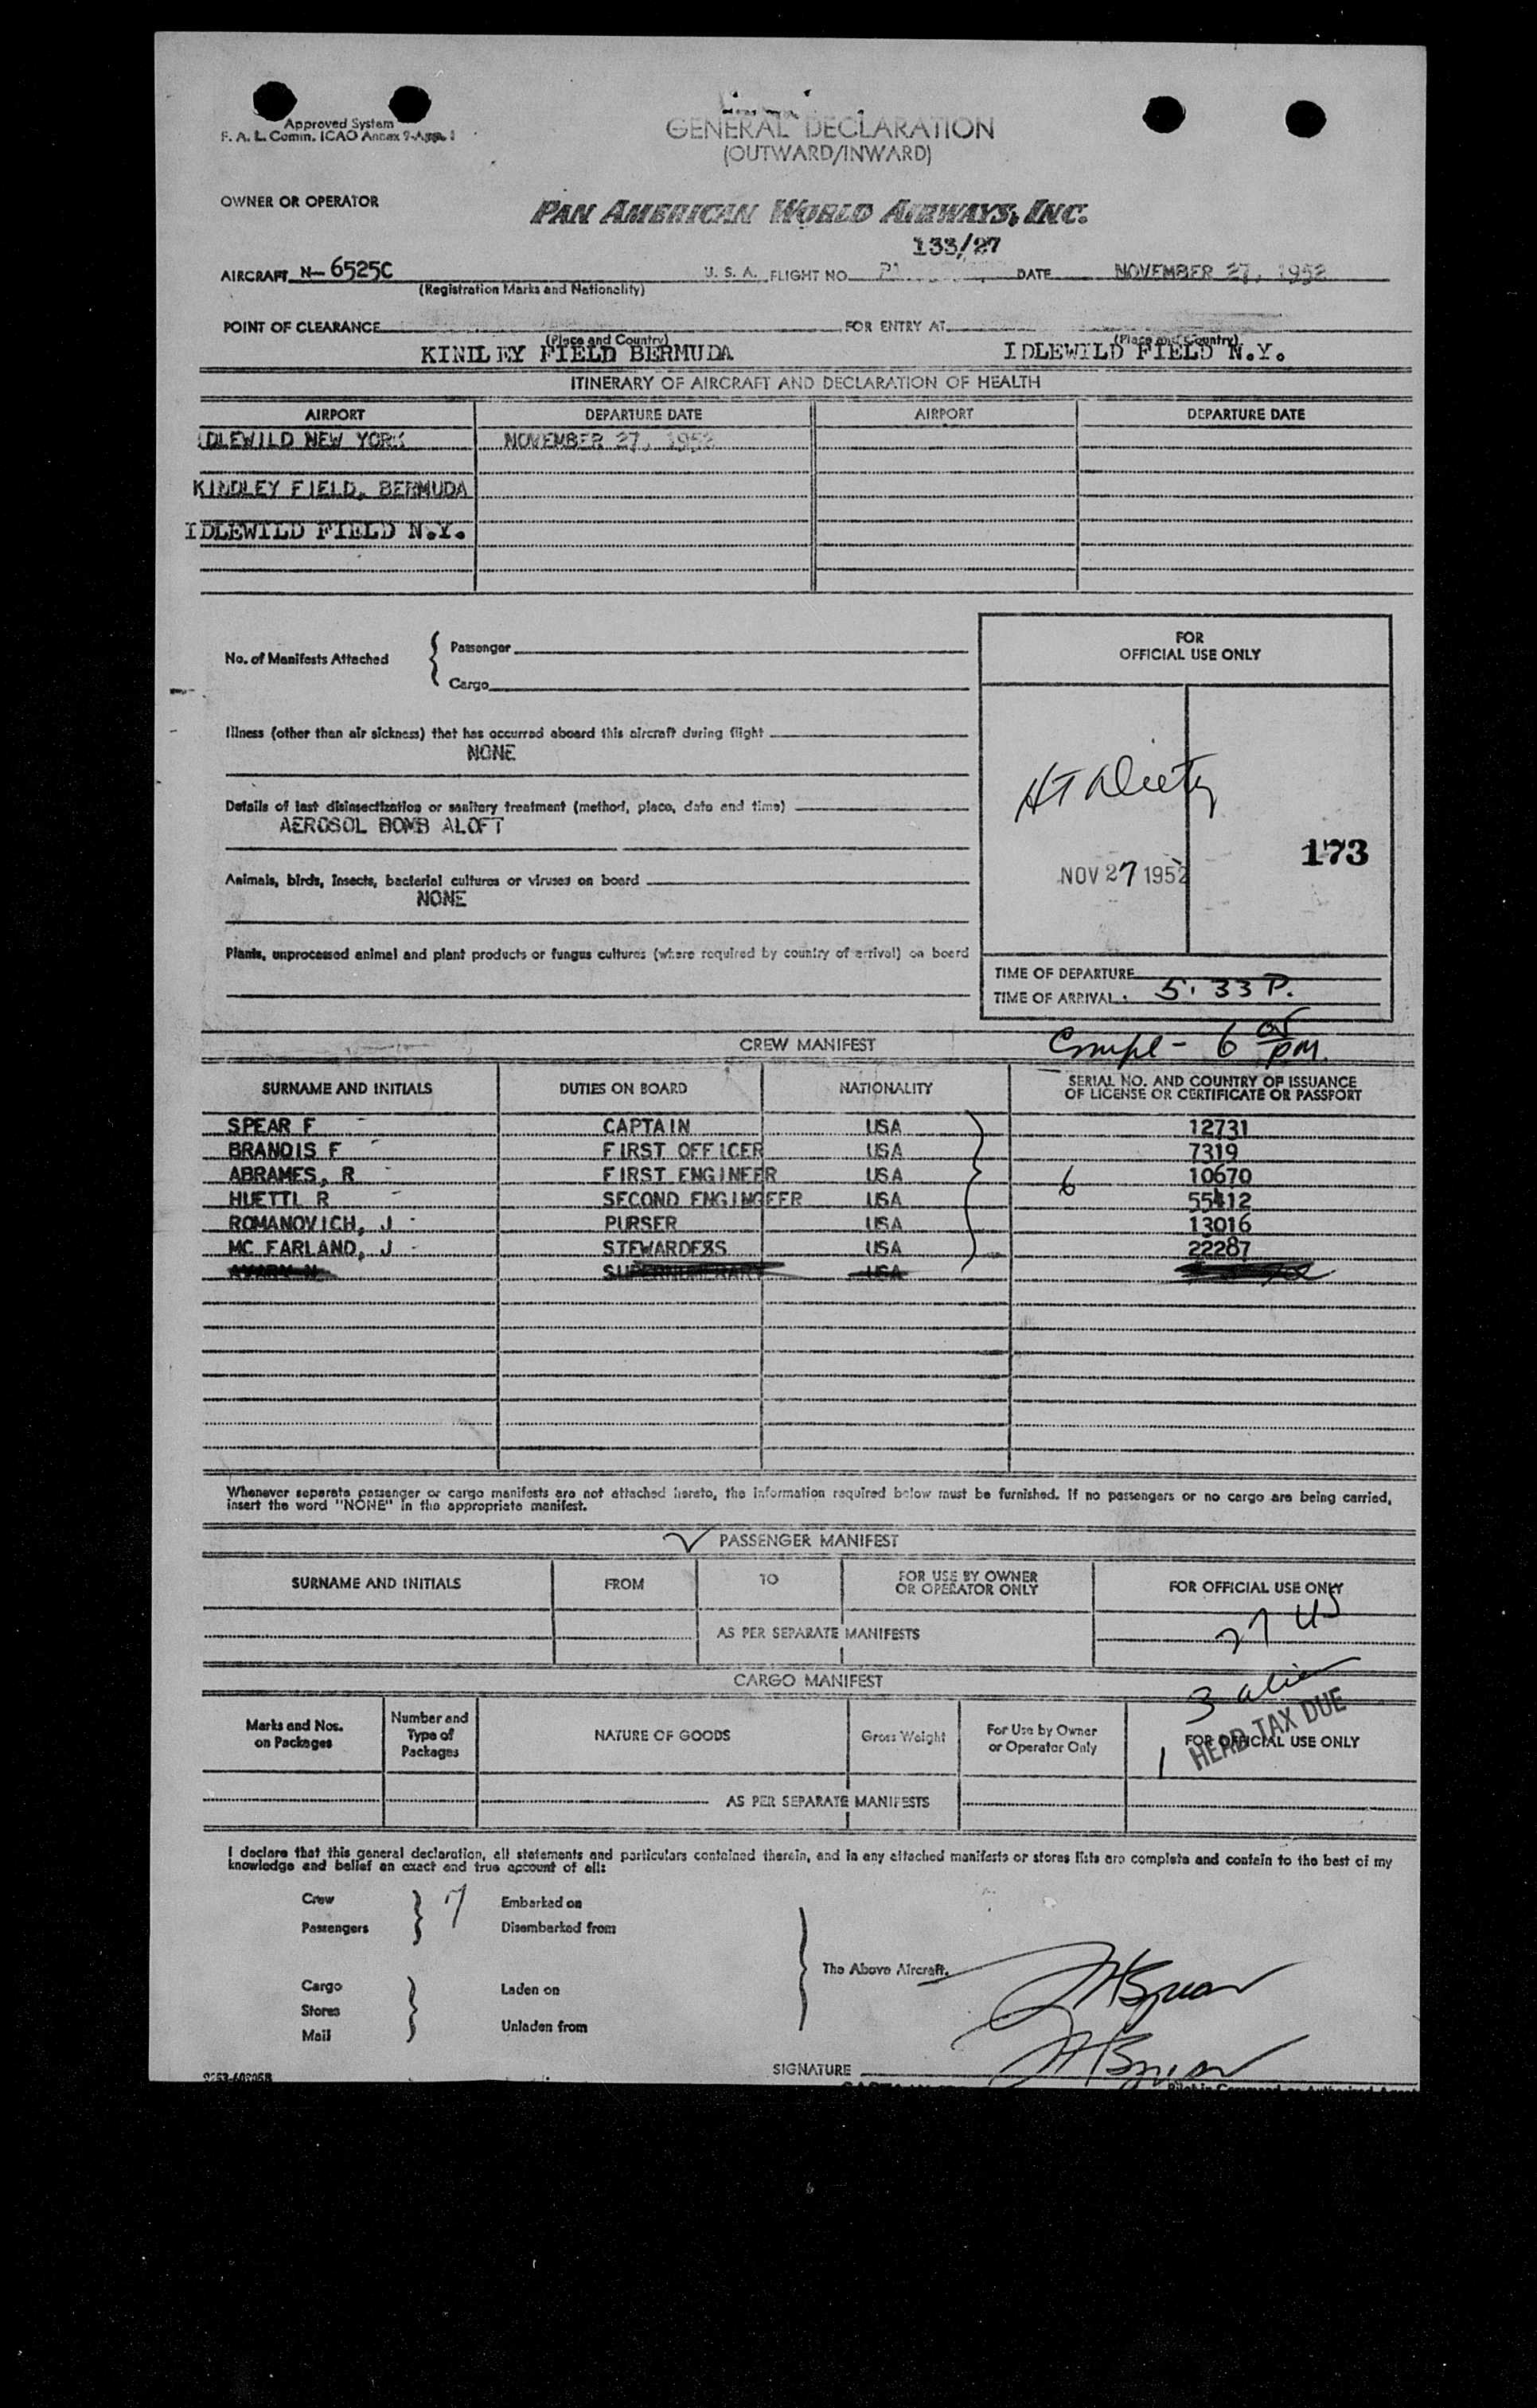 Approved System
F. A. L. Comm. ICAO Annex 9-App. 1
GENERAL DECLARATION
(OUTWARD/INWARD)
OWNER OR OPERATOR
PAN AMERICAN WORLD AIRWAYS, INC.
133/27
AIRCRAFT N- 6525C U. S. A. FLIGHT NO. DATE NOVEMBER 27, 1952
(Registration Marks and Nationality)
POINT OF CLEARANCE FOR ENTRY AT
(Place and Country) (Place and Country)
KINILEY FIELD BERMUDA IDLEWILD FIELD N.Y.
ITINERARY OF AIRCRAFT AND DECLARATION OF HEALTH
AIRPORT DEPARTURE DATE AIRPORT DEPARTURE DATE
IDLEWILD NEW YORK NOVEMBER 27, 1952
KINDLEY FIELD, BERMUDA
IDLEWILD FIELD N.Y.
FOR
OFFICIAL USE ONLY
No. of Manifests Attached
Passenger
Cargo
Illness (other than air sickness) that has occurred aboard this aircraft during flight
NONE
Details of last disinsectization or sanitary treatment (method, place, date and time)
AEROSOL BOMB ALOFT
173
NOV 27 1952
Animals, birds, insects, bacterial cultures or viruses on board
NONE
Plants, unprocessed animal and plant products or fungus cultures (where required by country of arrival) on board
TIME OF DEPARTURE
TIME OF ARRIVAL 5:33 P.
Compl - 6 05 pm.
CREW MANIFEST
SURNAME AND INITIALS DUTIES ON BOARD NATIONALITY SERIAL NO. AND COUNTRY OF ISSUANCE
OF LICENSE OR CERTIFICATE OR PASSPORT
SPEAR F CAPTAIN USA 12731
BRANDIS F FIRST OFFICER USA 7319
ABRAMES, R FIRST ENGINEER USA 6 10670
HUETTL R SECOND ENGINGEER USA 55412
ROMANOVICH, J PURSER USA 13016
MC FARLAND, J STEWARDESS USA 22287
Whenever separate passenger or cargo manifests are not attached hereto, the information required below must be furnished. If no passengers or no cargo are being carried,
insert the word "NONE" in the appropriate manifest.
PASSENGER MANIFEST
SURNAME AND INITIALS FROM TO FOR USE BY OWNER
OR OPERATOR ONLY FOR OFFICIAL USE ONLY
AS PER SEPARATE MANIFESTS 27 US
3 alien
CARGO MANIFEST
Marks and Nos.
on Packages Number and
Type of
Packages NATURE OF GOODS Gross Weight For Use by Owner
or Operator Only FOR OFFICIAL USE ONLY
1 HEAD TAX DUE
AS PER SEPARATE MANIFESTS
I declare that this general declaration, all statements and particulars contained therein, and in any attached manifests or stores lists are complete and contain to the best of my
knowledge and belief an exact and true account of all:
Crew Embarked on
Passengers 7 Disembarked from
The Above Aircraft.
Cargo Laden on
Stores
Mail Unladen from
SIGNATURE